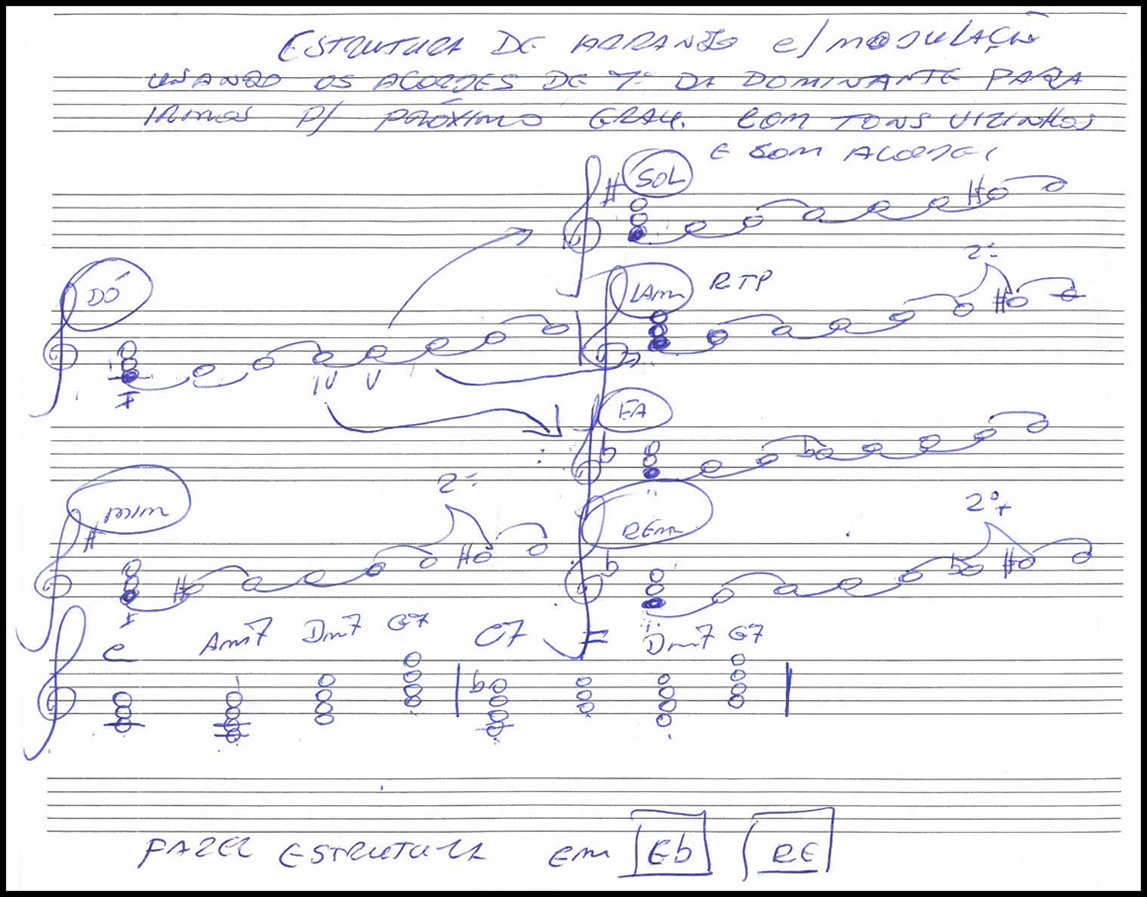 ESTRUTURA DE ARRANJO c/ MODULAÇÃO
USANDO OS ACORDES DE 7ª DA DOMINANTE PARA
IRMOS P/ PRÓXIMO GRAU. COM TONS VIZINHOS
E SOM ACORDE
# SOL #
DÓ
I IV V
LAm RTP 2ª #
FÁ
b b
MIm
# # 2ª #
I
REm
b b 2ª+ #
C Am7 Dm7 G7 C7 F Dm7 G7
b
FAZER ESTRUTURA em Eb RÉ